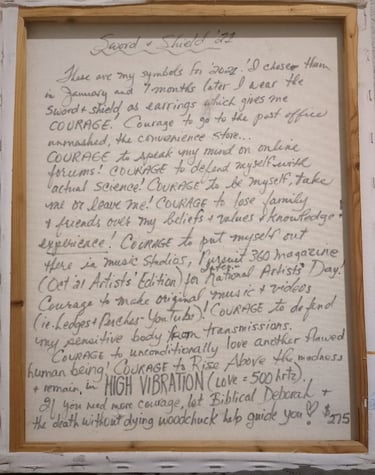 Sword + Shield '21
These are my symbols for '2021.' I chose them
in January and 7 months later I wear the
sword + shield as earrings which gives me
COURAGE. Courage to go to the post office
unmasked, the convenience store...
COURAGE to speak my mind on online
forums! COURAGE to defend myself with
actual science! COURAGE to be myself, take
me or leave me! COURAGE to lose family
+ friends over my beliefs + values + knowledge +
experience! COURAGE to put myself out
there in music studios, Pursuit 360 magazine
(Oct '21 Artists' Edition) for International Artists' Day!
Courage to make original music + videos
(ie. Ledges + Perches - YouTube)! COURAGE to defend
my sensitive body from transmissions.
COURAGE to unconditionally love another flawed
human being! COURAGE to Rise Above the madness
+ remain in HIGH VIBRATION (Love = 500 hrtz).
If you need more courage, let Biblical Deborah +
the death without dying woodchuck help guide you! ♡ $275